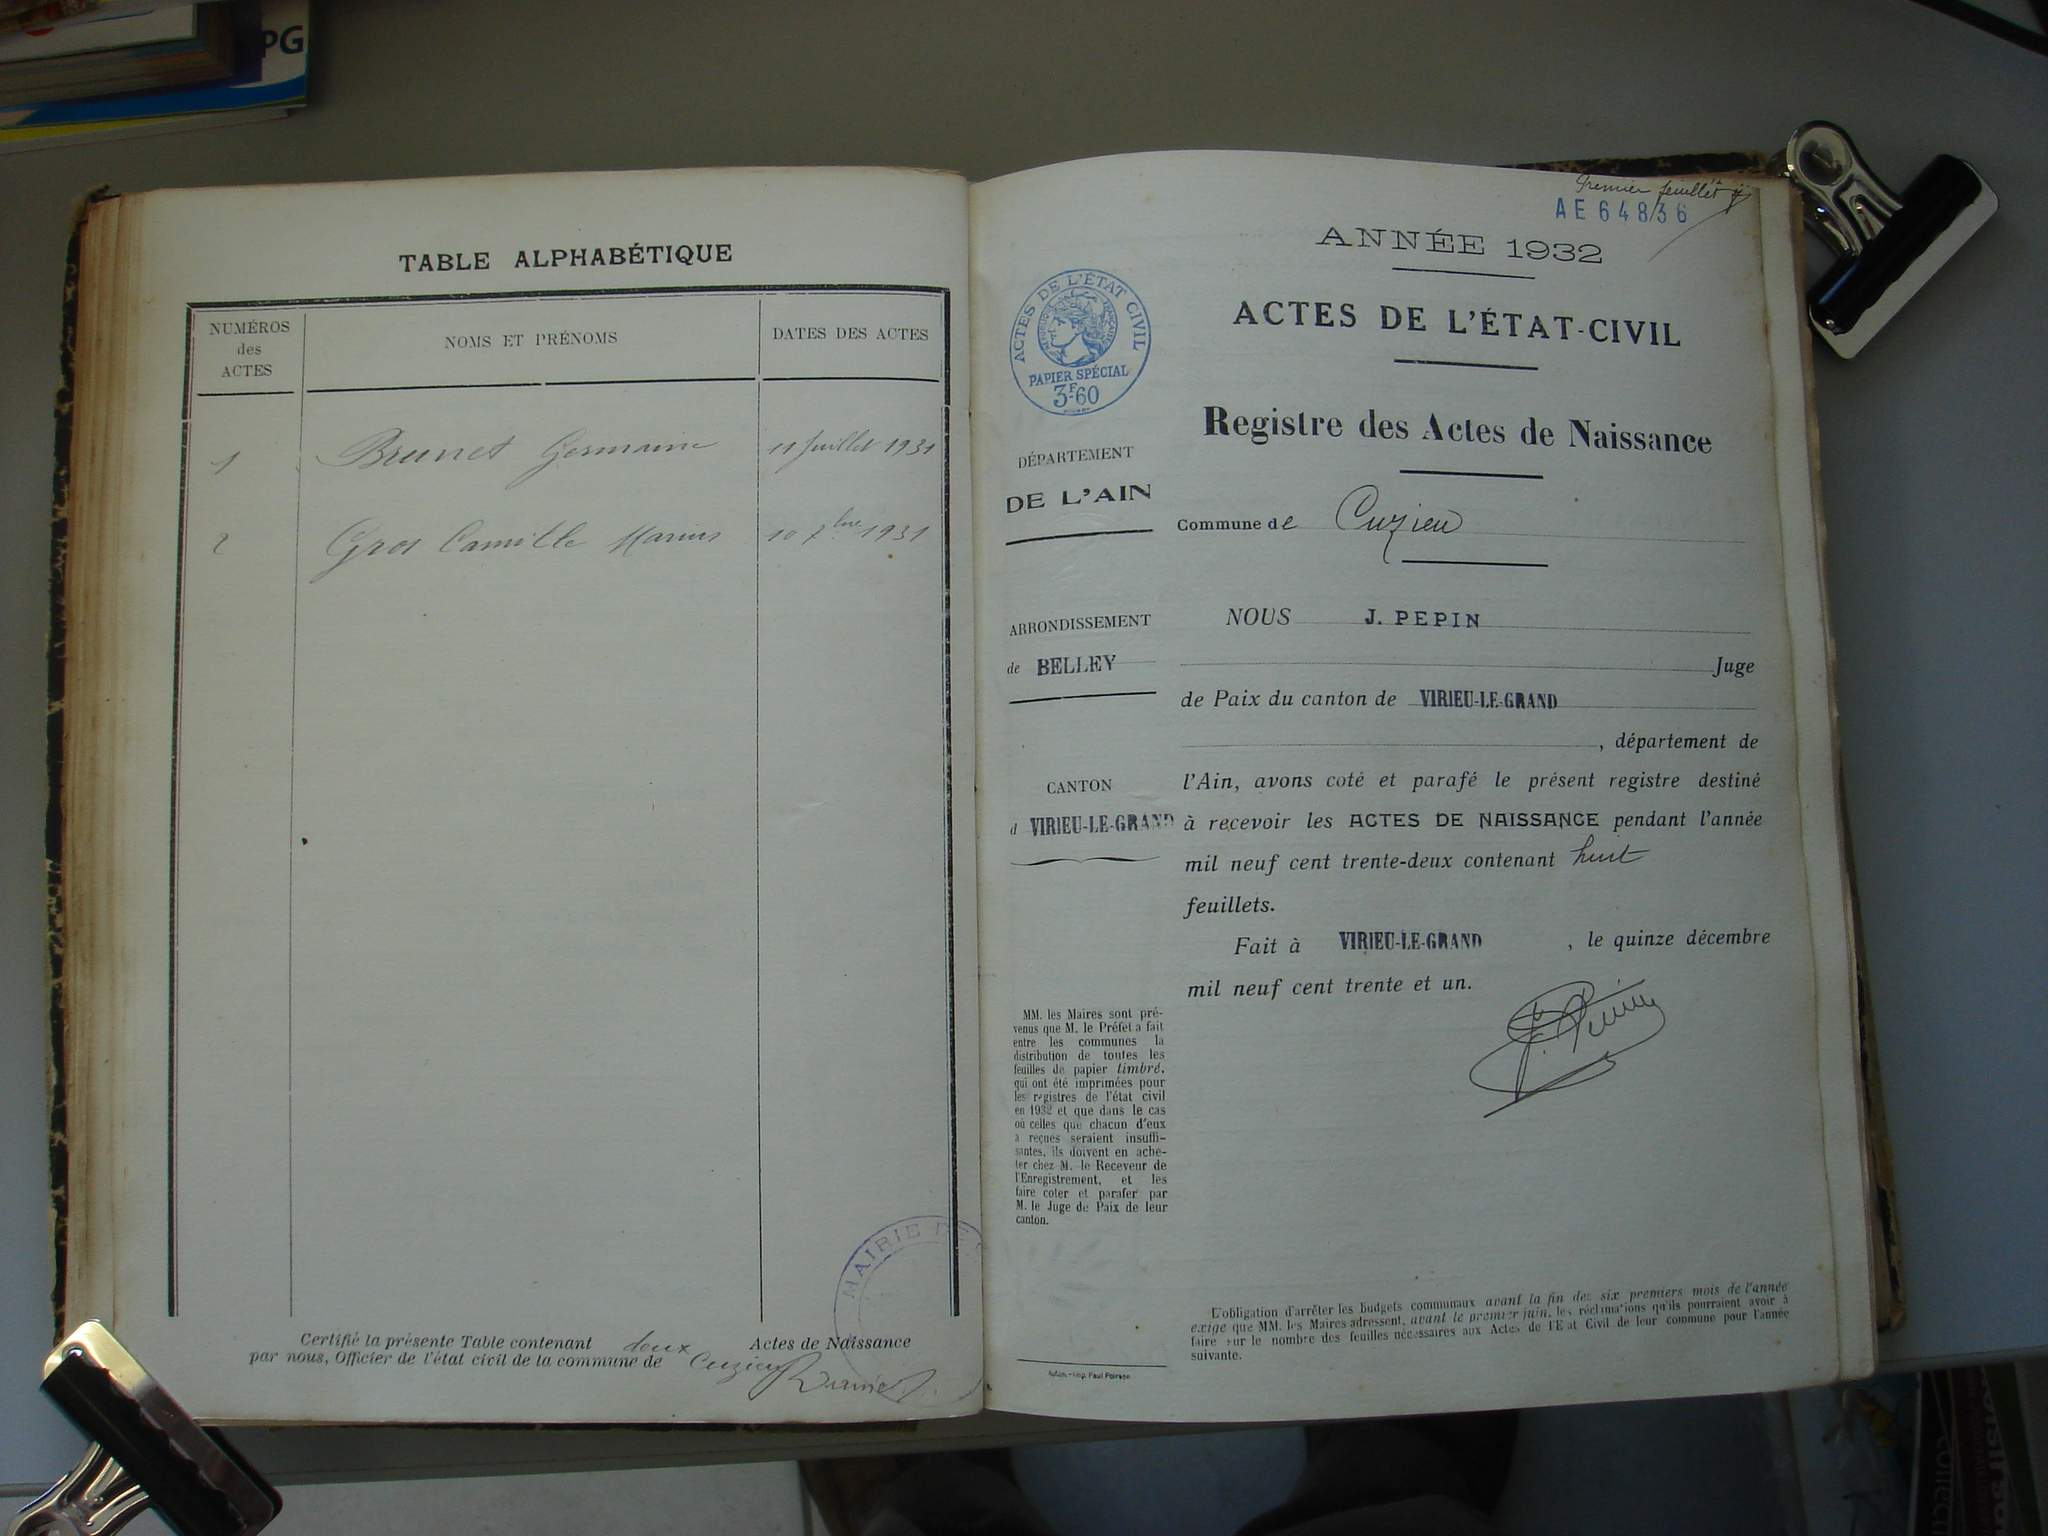 PG
TABLE ALPHABÉTIQUE
NUMÉROS
des
ACTES
NOMS ET PRÉNOMS
DATES DES ACTES
1 Brunet Germaine 11 Juillet 1931
2 Gros Camille Marius 10 7bre 1931
MAIRIE DE
Certifié la présente Table contenant deux Actes de Naissance
par nous, Officier de l'état civil de la commune de Cuzieu
Premier feuillet
AE64836
ANNÉE 1932
ACTES DE L'ÉTAT CIVIL
PAPIER SPÉCIAL
3F60
ACTES DE L'ÉTAT-CIVIL
Registre des Actes de Naissance
DÉPARTEMENT
DE L'AIN
Commune de Cuzieu
ARRONDISSEMENT
de BELLEY
CANTON
d VIRIEU-LE-GRAND
NOUS J. PEPIN
Juge
de Paix du canton de VIRIEU-LE-GRAND
, département de
l'Ain, avons coté et parafé le présent registre destiné
à recevoir les ACTES DE NAISSANCE pendant l'année
mil neuf cent trente-deux contenant huit
feuillets.
Fait à VIRIEU-LE-GRAND , le quinze décembre
mil neuf cent trente et un.
MM. les Maires sont pré-
venus que M. le Préfet a fait
entre les communes la
distribution de toutes les
feuilles de papier timbré,
qui ont été imprimées pour
les registres de l'état civil
en 1932 et que dans le cas
où celles que chacun d'eux
a reçues seraient insuffi-
santes, ils doivent en ache-
ter chez M. le Receveur de
l'Enregistrement, et les
faire coter et parafer par
M. le Juge de Paix de leur
canton.
L'obligation d'arrêter les budgets communaux avant la fin des six premiers mois de l'année
exige que MM. les Maires adressent, avant le premier juin, les réclamations qu'ils pourraient avoir à
faire sur le nombre des feuilles nécessaires aux Actes de l'Etat Civil de leur commune pour l'année
suivante.
Imp. Paul Poirson